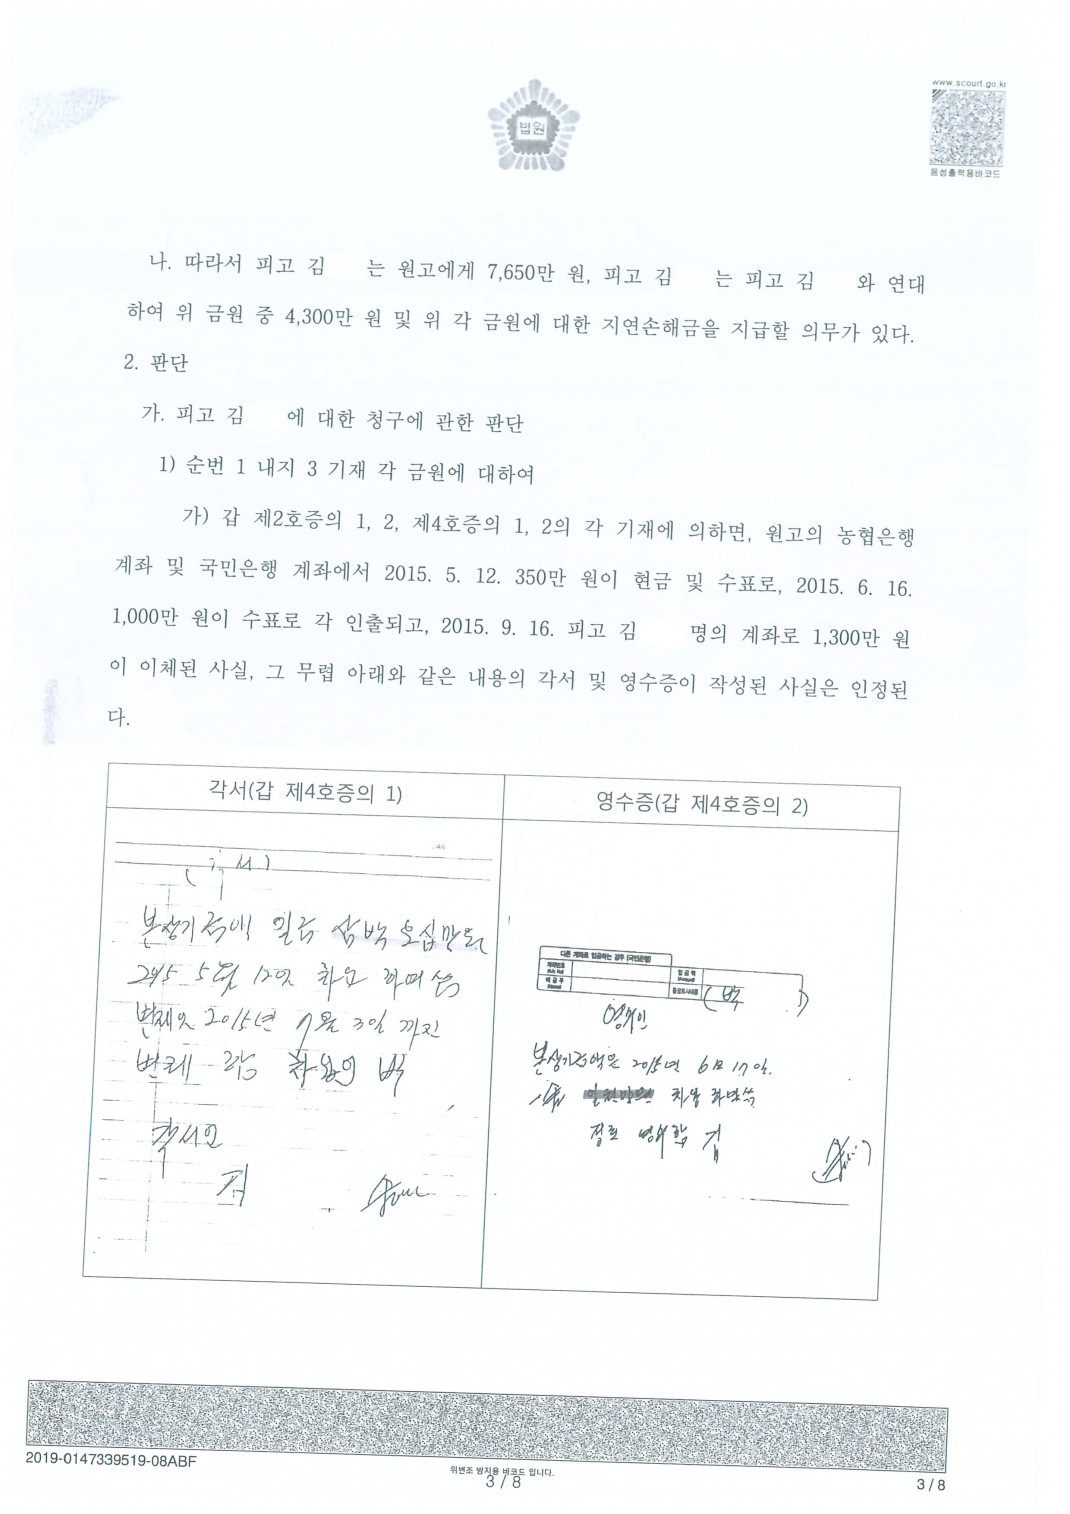 www.scourt.go.kr
법원
음성출력용바코드
나. 따라서 피고 김 는 원고에게 7,650만 원, 피고 김 는 피고 김 와 연대
하여 위 금원 중 4,300만 원 및 위 각 금원에 대한 지연손해금을 지급할 의무가 있다.
2. 판단
가. 피고 김 에 대한 청구에 관한 판단
1) 순번 1 내지 3 기재 각 금원에 대하여
가) 갑 제2호증의 1, 2, 제4호증의 1, 2의 각 기재에 의하면, 원고의 농협은행
계좌 및 국민은행 계좌에서 2015. 5. 12. 350만 원이 현금 및 수표로, 2015. 6. 16.
1,000만 원이 수표로 각 인출되고, 2015. 9. 16. 피고 김 명의 계좌로 1,300만 원
이 이체된 사실, 그 무렵 아래와 같은 내용의 각서 및 영수증이 작성된 사실은 인정된
다.
각서(갑 제4호증의 1)
본상기 금액 일금 삼백오십만원
2015 5월 12일 차용 하며
2015년 7월 3일 까지
각서인
영수증(갑 제4호증의 2)
다른 계좌로 입금하는 경우 (국민은행)
계좌번호
입금액
(박 )
영수인
본상기 금액은 2015년 6월 17일.
차용 하며
2019-0147339519-08ABF
위변조 방지용 바코드 입니다.
3 / 8
3 / 8